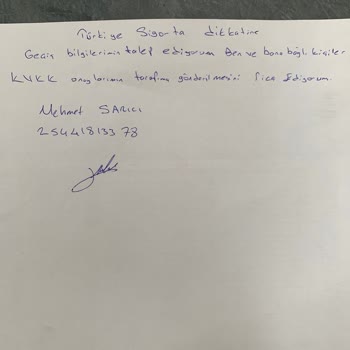 Türkiye Sigorta dikkatine
Geçiş bilgilerimin talep ediyorum Ben ve bana bağlı kişiler
KVKK onaylarımın tarafıma gönderilmesini rica Ediyorum.
Mehmet SARICI
25441813378